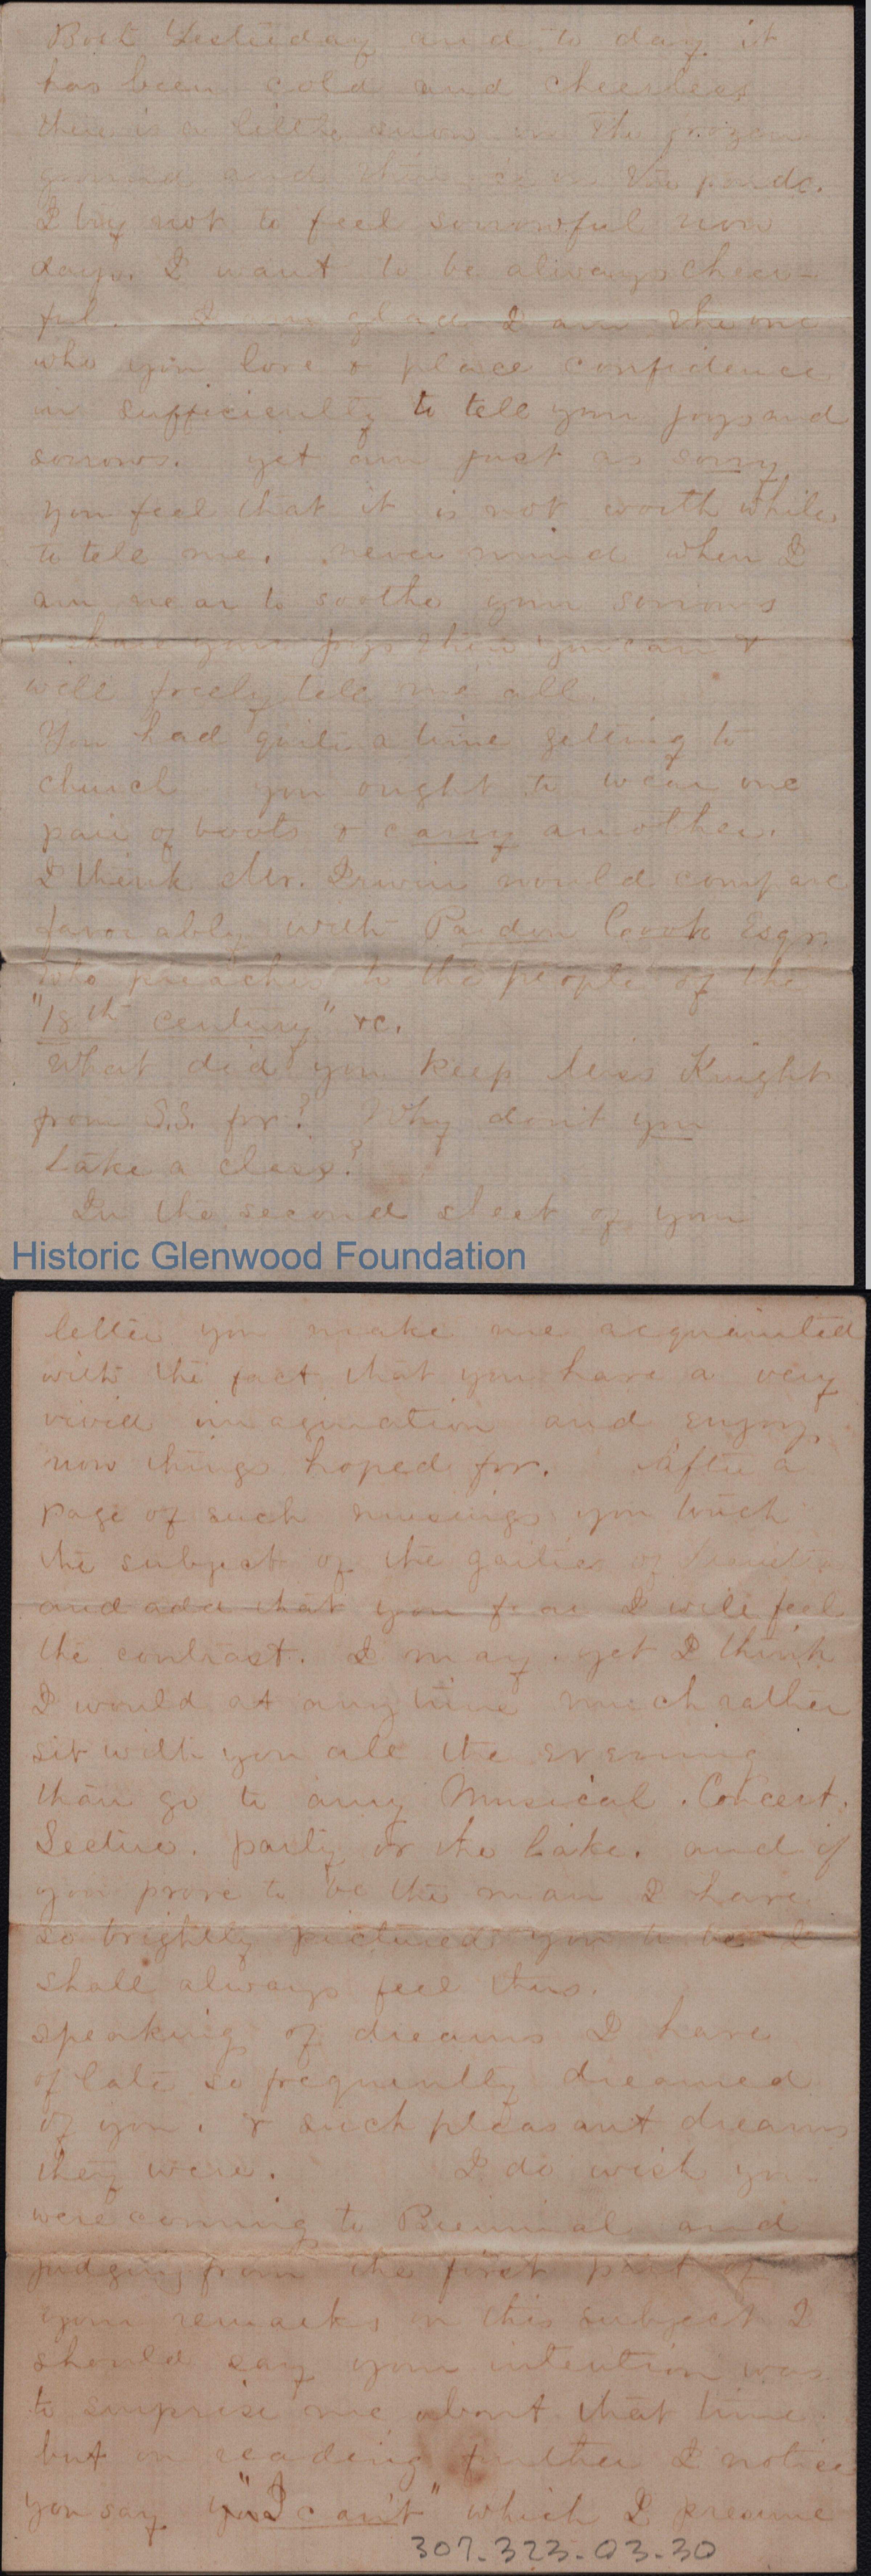 Both Yesterday and to day it
has been cold and cheerless
there is a little snow on the frozen
ground and thin ice on the ponds.
I try not to feel sorrowful now
days. I want to be always cheer-
ful. I am glad I am the one
who you love & place confidence
in sufficiently to tell your joys and
sorrows. yet am just as sorry
you feel that it is not worth while
to tell me. never mind when I
am near to soothe your sorrows
& share your joys then you can &
will freely tell me all.
You had quite a time getting to
church you ought to wear one
pair of boots & carry another.
I think Mr. Irwin would compare
favorably with Pardon Cook Esqr.
who preaches to the people of the
"18th century" &c.
What did you keep Miss Knight
from S.S. for? Why don't you
take a class?
In the second sheet of your
Historic Glenwood Foundation
letter you make me acquainted
with the fact that you have a very
vivid imagination and enjoy
now things hoped for. After a
page of such musings you touch
the subject of the gaities of
and add that you fear I will feel
the contrast. I may. yet I think
I would at any time much rather
sit with you all the evening
than go to any Musical. Concert.
Lecture. party or the like. and if
you prove to be the man I have
so brightly pictured you to be I
shall always feel thus.
speaking of dreams I have
of late so frequently dreamed
of you. & such pleasant dreams
they were. I do wish you
were coming to Biennial and
judging from the first part of
your remarks on this subject I
should say your intention was
to surprise me about that time.
but on reading further I notice
you say "I can't" which I presume
307-323-03-30